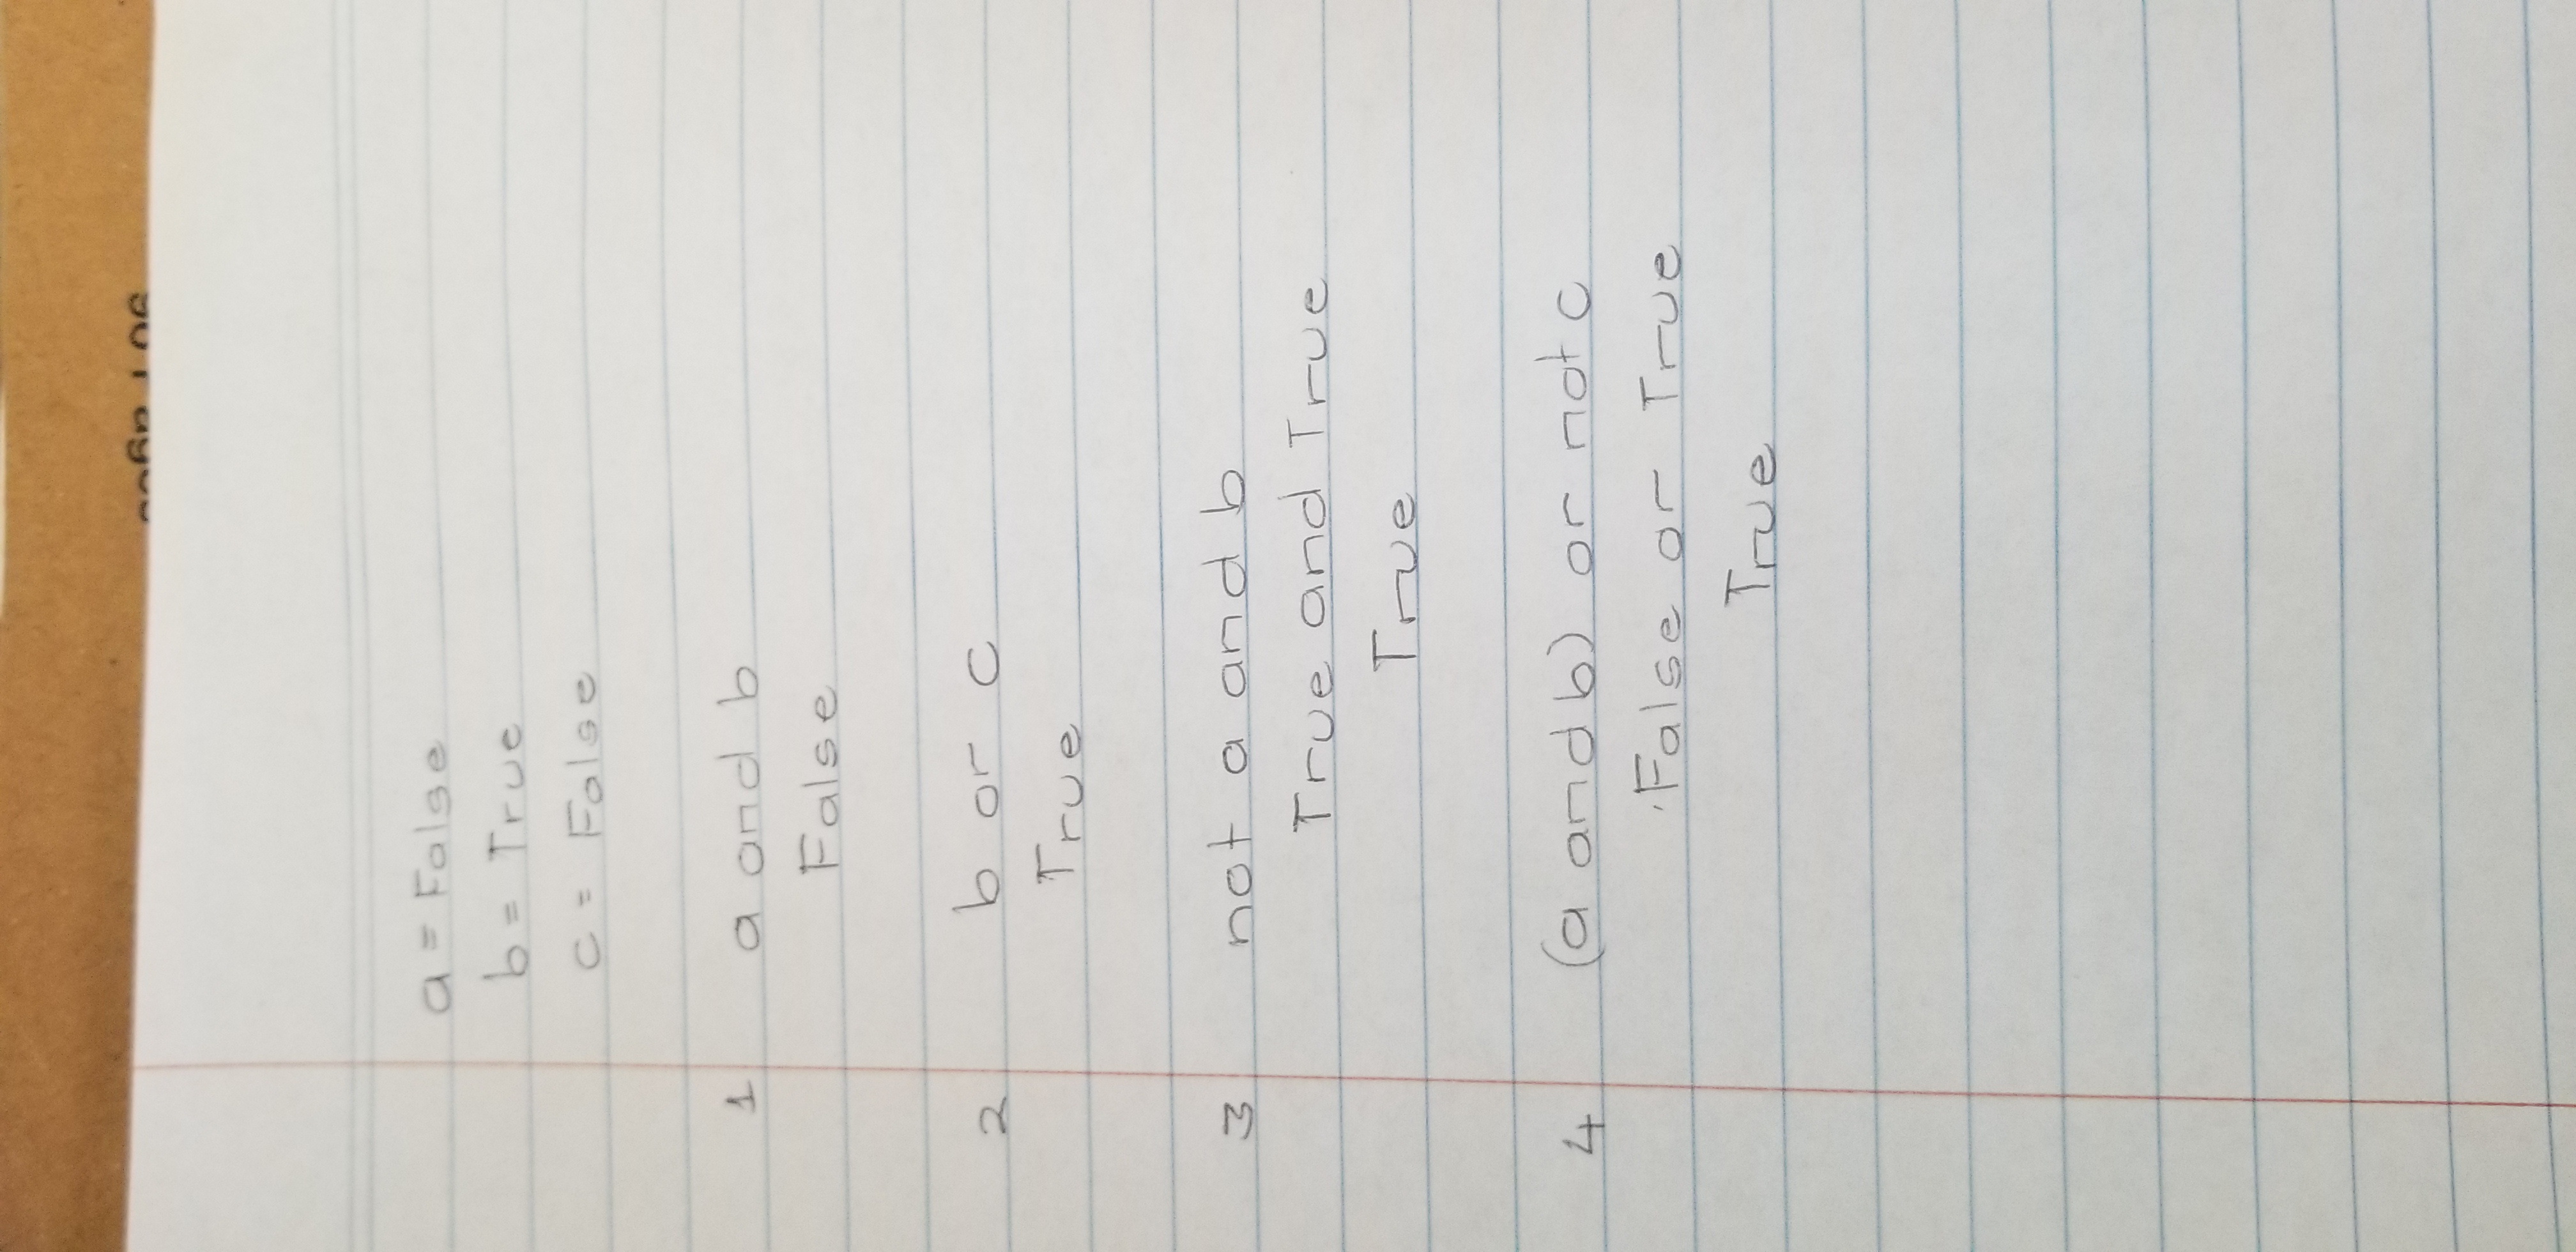 a = False
b = True
c = False
1 a and b
False
2 b or c
True
3 not a and b
True and True
True
4 (a and b) or not c
False or True
True